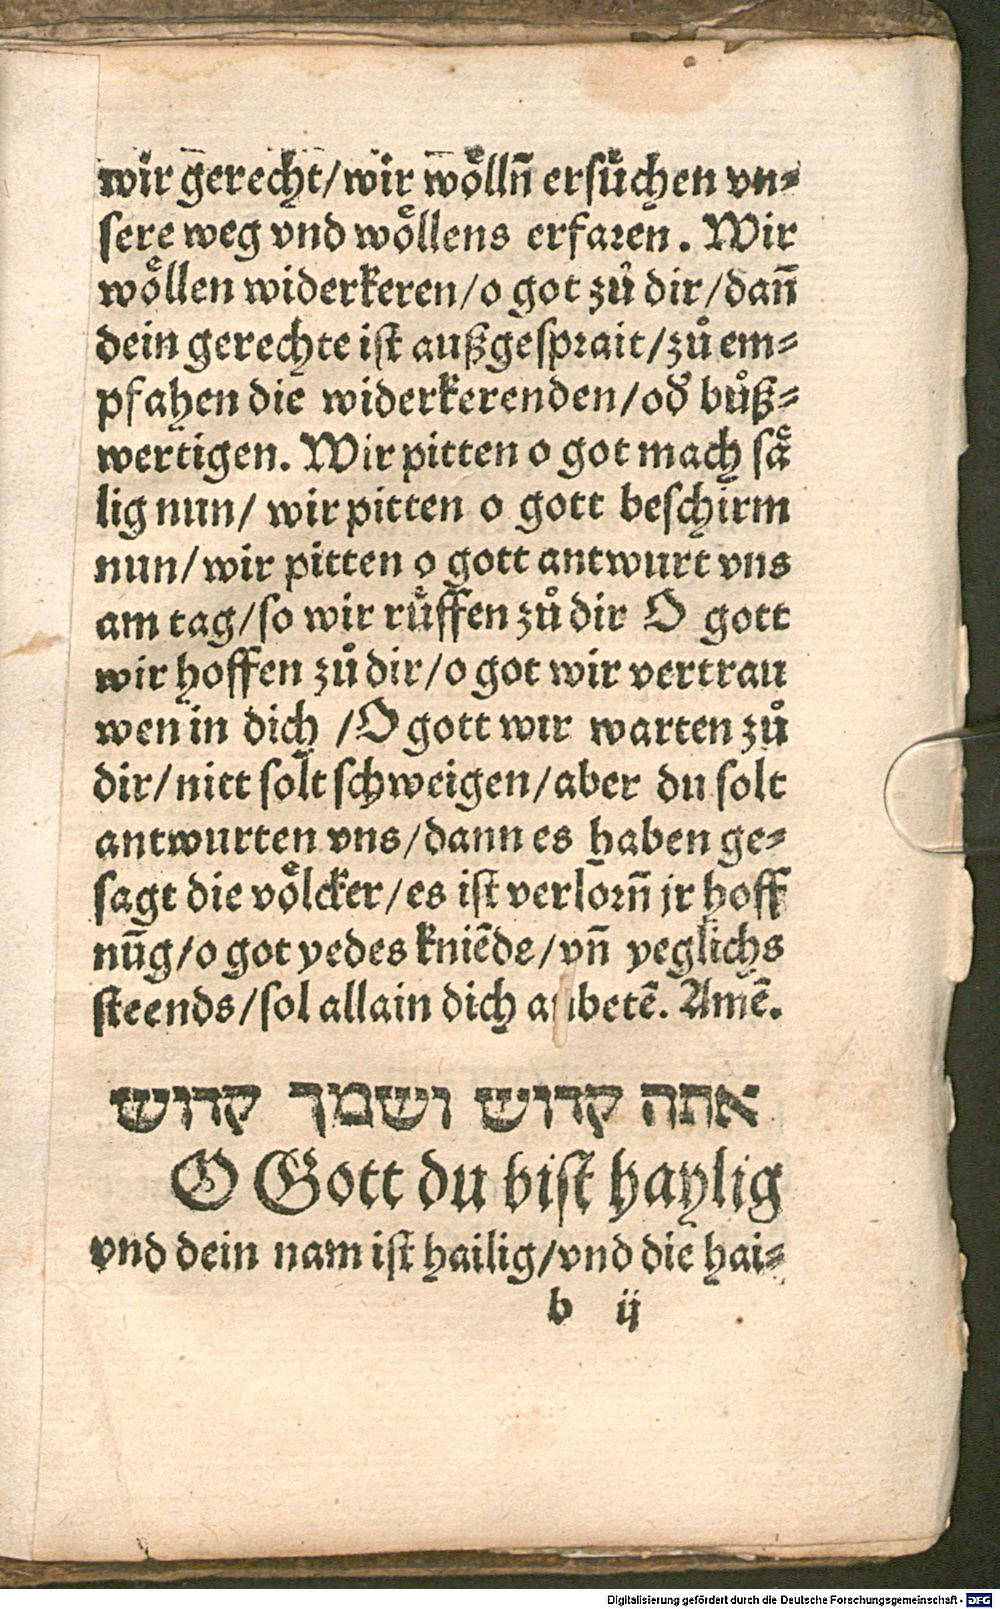 wir gerecht/wir woͤlln̄ ersuͤchen vn⸗
sere weg vnd woͤllens erfaren. Wir
woͤllen widerkeren/o got zuͦ dir/dañ
dein gerechte ist außgesprait/zuͦ em⸗
pfahen die widerkerenden/od' buͦß⸗
wertigen. Wir pitten o got mach saͤ
lig nun/ wir pitten o gott beschirm
nun/wir pitten o gott antwurt vns
am tag/so wir ruͤffen zuͦ dir O gott
wir hoffen zuͦ dir/o got wir vertrau
wen in dich /O gott wir warten zuͦ
dir/nitt solt schweigen/aber du solt
antwurten vns/dann es haben ge⸗
sagt die voͤlcker/es ist verlorn̄ jr hoff
nūg/o got yedes kniēds/vn̄ yeglichs
steends/sol allain dich anbetē. Amē.
אתה קדוש ושמך קדוש
O Gott du bist haylig
vnd dein nam ist hailig/vnd die hai⸗
b ij
Digitalisierung gefördert durch die Deutsche Forschungsgemeinschaft - DFG